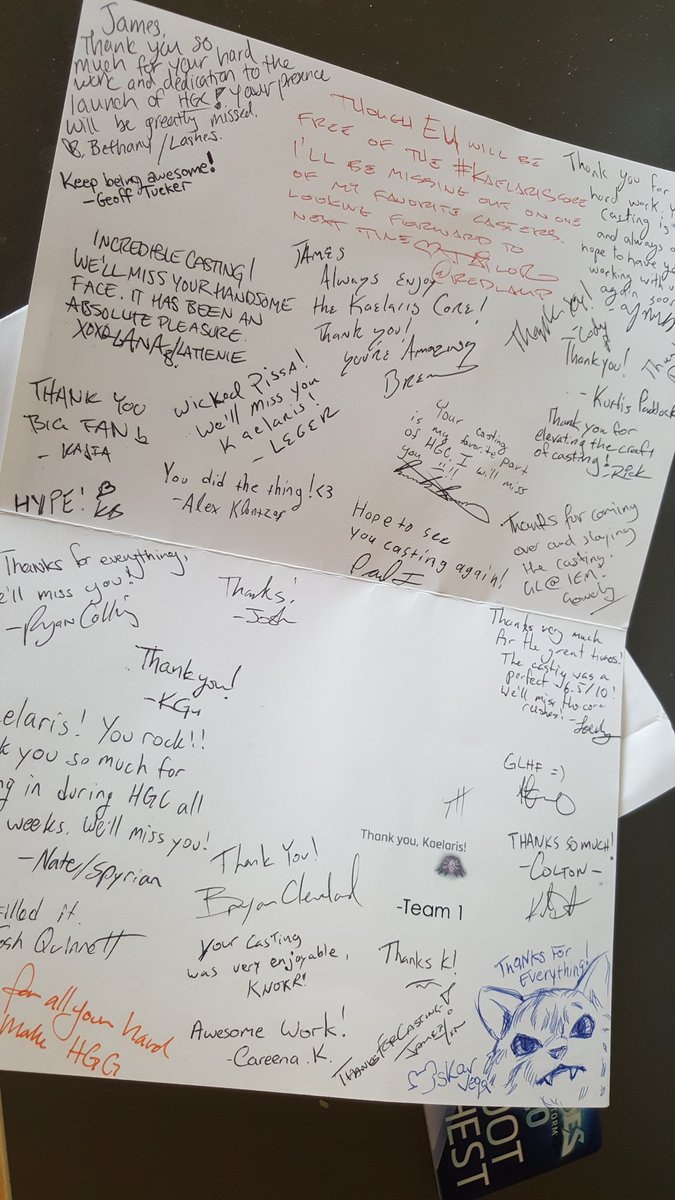 James,
Thank you so
much for your hard
work and dedication to the
launch of HGC! Your presence
will be greatly missed.
Bethany/Lashes.
Keep being awesome!
-Geoff Tucker
THOUGH EU WILL BE
FREE OF THE #KAELARISCORE
I'LL BE MISSING OUT ON ONE
OF MY FAVORITE CASTERS.
LOOKING FORWARD TO
NEXT TIME
@REDLAMP
Thank you for
hard work. Y
casting is
and always a
hope to have yo
working with u
again soon
INCREDIBLE CASTING!
WE'LL MISS YOUR HANDSOME
FACE. IT HAS BEEN AN
ABSOLUTE PLEASURE.
XOXO LANA/LATIENIE
JAMES
Always Enjoy
the Kaelaris Core!
Thank you!
You're Amazing
Thank you!
-Cody
Thank you!
- Kurtis Paddock
THANK YOU
BIG FAN
- KAJIA
Wicked Pissa!
We'll miss you
Kaelaris!
- LEGER
Your casting
is my favorite part
of HGC. I will miss
you
Thank you for
elevating the craft
of casting!
-Rick
HYPE!
You did the thing! <3
-Alex
Hope to see
you casting again!
Thanks for coming
over and slaying
the casting.
GL @ IEM.
Thanks for everything,
e'll miss you!
-Ryan
Thanks!
-Josh
Thanks very much
for the great times!
The casting was a
perfect
We'll miss the core
rushes!
Thank you!
-KGu
aelaris! You rock!!
k you so much for
ng in during HGC all
weeks. We'll miss you!
-Nate/Spyrian
GLHF =)
Thank you, Kaelaris!
-Team 1
THANKS SO MUCH!
-COLTON-
Thank You!
Bryan Cleveland
illed it.
osh Quinnett
Your casting
was very enjoyable,
KNOKR!
Thanks K!
THANKS FOR
EVERYTHING!
for all your hard
make HGG
Awesome Work!
-Careena K.
THANKS FOR CASTING!
OSKAR
VEGA
STORM
OOT
HEST